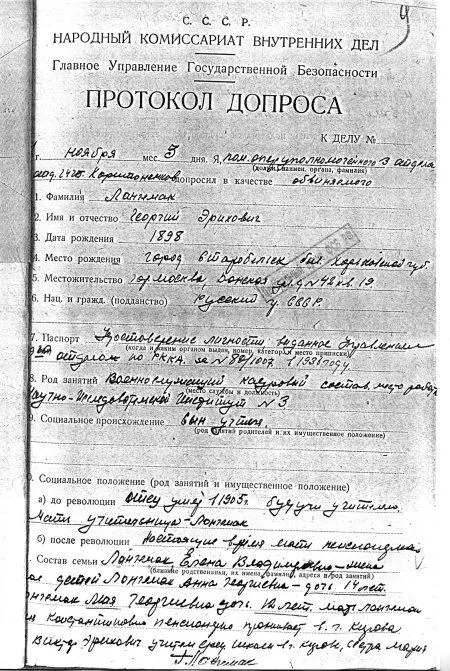 9
С. С. С. Р.
НАРОДНЫЙ КОМИССАРИАТ ВНУТРЕННИХ ДЕЛ
Главное Управление Государственной Безопасности
ПРОТОКОЛ ДОПРОСА
К ДЕЛУ №
г. ноября мес. 5 дня. Я, пом. оперуполномоченного 3 отдела
(должн., наимен. органа, фамилия)
допросил в качестве обвиняемого
1. Фамилия Лангемак
2. Имя и отчество Георгий Эрихович
3. Дата рождения 1898
4. Место рождения город Старобельск быв. Харьковской губ.
5. Местожительство гор Москва, Донская ул. д № 42 кв. 19.
6. Нац. и гражд. (подданство) Русский г. СССР.
7. Паспорт Удостоверение личности выданное Управлением
(когда и каким органом выдан, номер, категория и место приписки)
отделом по РККА. за № 1936 году.
8. Род занятий Военнослужащий кадровый состав, место работы
(место службы и должность)
Научно-Исследовательский Институт № 3
9. Социальное происхождение сын учителя
(род занятий родителей и их имущественное положение)
0. Социальное положение (род занятий и имущественное положение)
а) до революции отец умер 1905 г. будучи учителем,
мать учительница-Лангемак
б) после революции настоящее время мать пенсионерка
. Состав семьи Лангемак, Елена Владимировна – жена
(ближние родственники, их имена, фамилии, адреса и род занятий)
детей Лангемак Анна Георгиевна – дочь 14 лет.
Лангемак Майя Георгиевна дочь. 12 лет. мать Лангемак
Константиновна пенсионерка проживает в г.
Эрихович учитель сред. школы в г. сестра Мария
Г. Лангемак